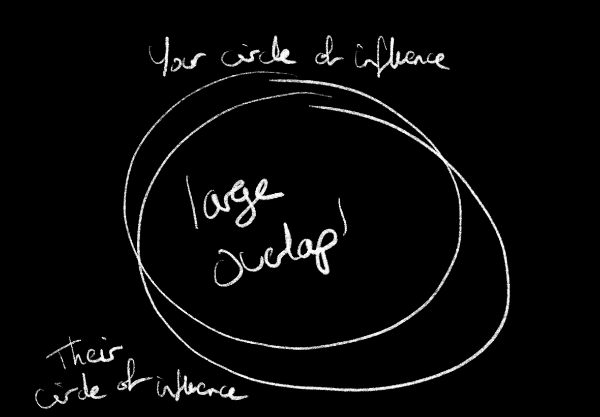 Your circle of influence
large
overlap
Their
circle of influence